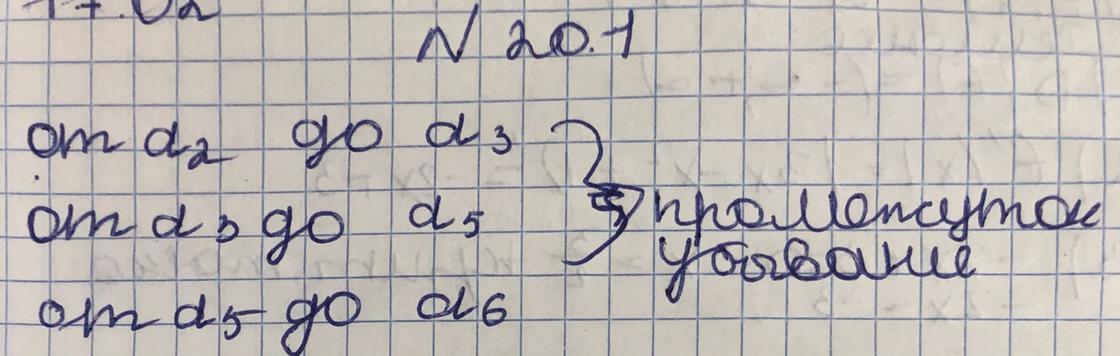 17.02
N 20.1
от d₂ до d₃
от d₃ до d₅ промежуток
убывание
от d₅ до d₆